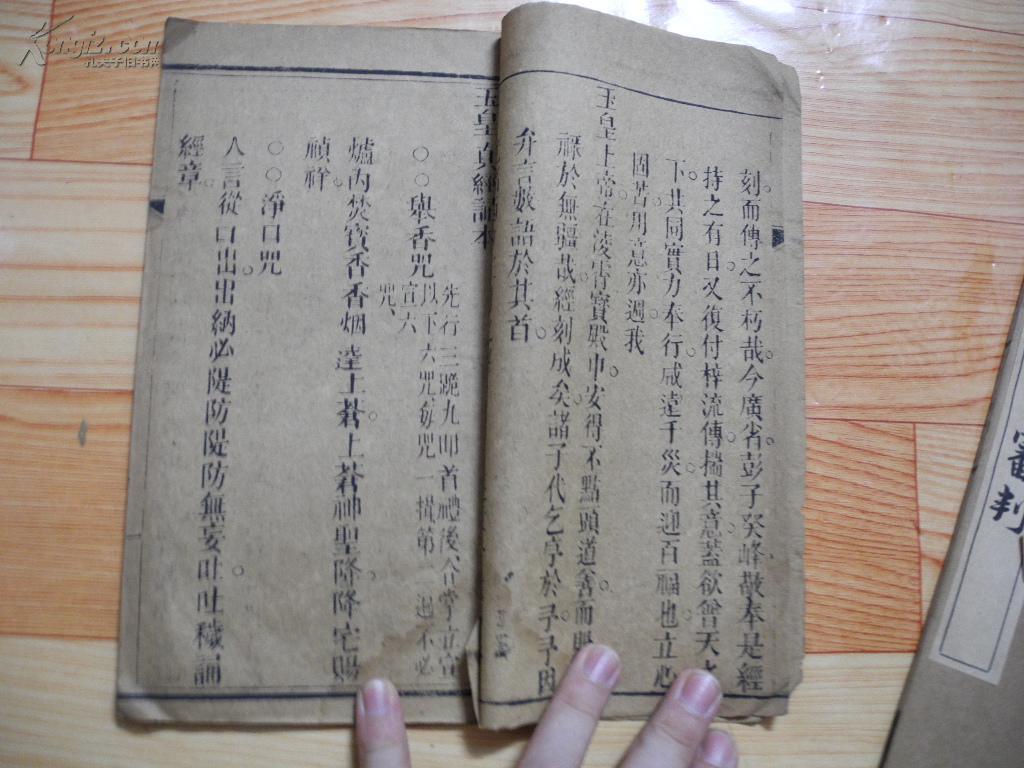 刻而傳之不朽哉今廣省彭子突峰敬奉是經
持之有日又復付梓流傳揣其意蓋欲曾天之
下共同實力奉行咸逹千災而迎百福也立心
固苦用意亦週我
玉皇上帝在凌霄寳殿中安得不點頭道善而賜
祿於無疆哉經刻成矣諸子代乞序於予予因
弁言數語於其首
玉皇真經誦本
○○舉香咒 先行三跪九叩首禮後合掌立宣
以下六咒每咒一揖第二過不必
宣六
咒
爐內焚寳香香烟達上蒼上蒼神聖降降宅賜
禎祥
○○淨口咒
人言從口出出納必隄防隄防無妄吐吐穢誦
經章
審判
Kongfz.com
孔夫子旧书网